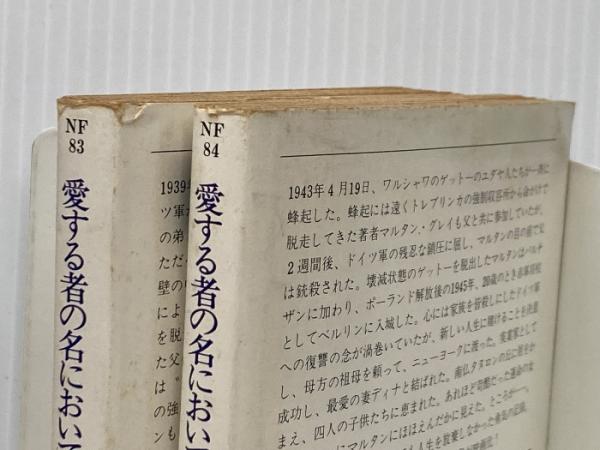 NF
83
愛する者の名において
1939年
ツ軍が
弟
のだ
たの
壁い
によ
を脱
た父
は。
の強
ンも
NF
84
愛する者の名において
1943年4月19日、ワルシャワのゲットーのユダヤ人たちが一斉に
蜂起した。蜂起には遠くトレブリンカの強制収容所から命がけで
脱走してきた著者マルタン・グレイも父と共に参加していたが、
2週間後、ドイツ軍の残忍な鎮圧に屈し、マルタンの目の前で父
は銃殺された。壊滅状態のゲットーを脱出したマルタンはパルチ
ザンに加わり、ポーランド解放後の1945年、20歳のとき赤軍将校
としてベルリンに入城した。心には家族を皆殺しにしたドイツ軍
への復讐の念が渦巻いていたが、新しい人生に賭けることを決意
し、母方の祖母を頼って、ニューヨークに渡った。実業家として
成功し、最愛の妻ディナと結ばれた。南仏タヌロンの丘に居をか
まえ、四人の子供たちに恵まれた。あれほど苛酷だった運命の女
にマルタンにほほえんだかに見えた。ところが──、
も人生を放棄しなかった勇気の記録、